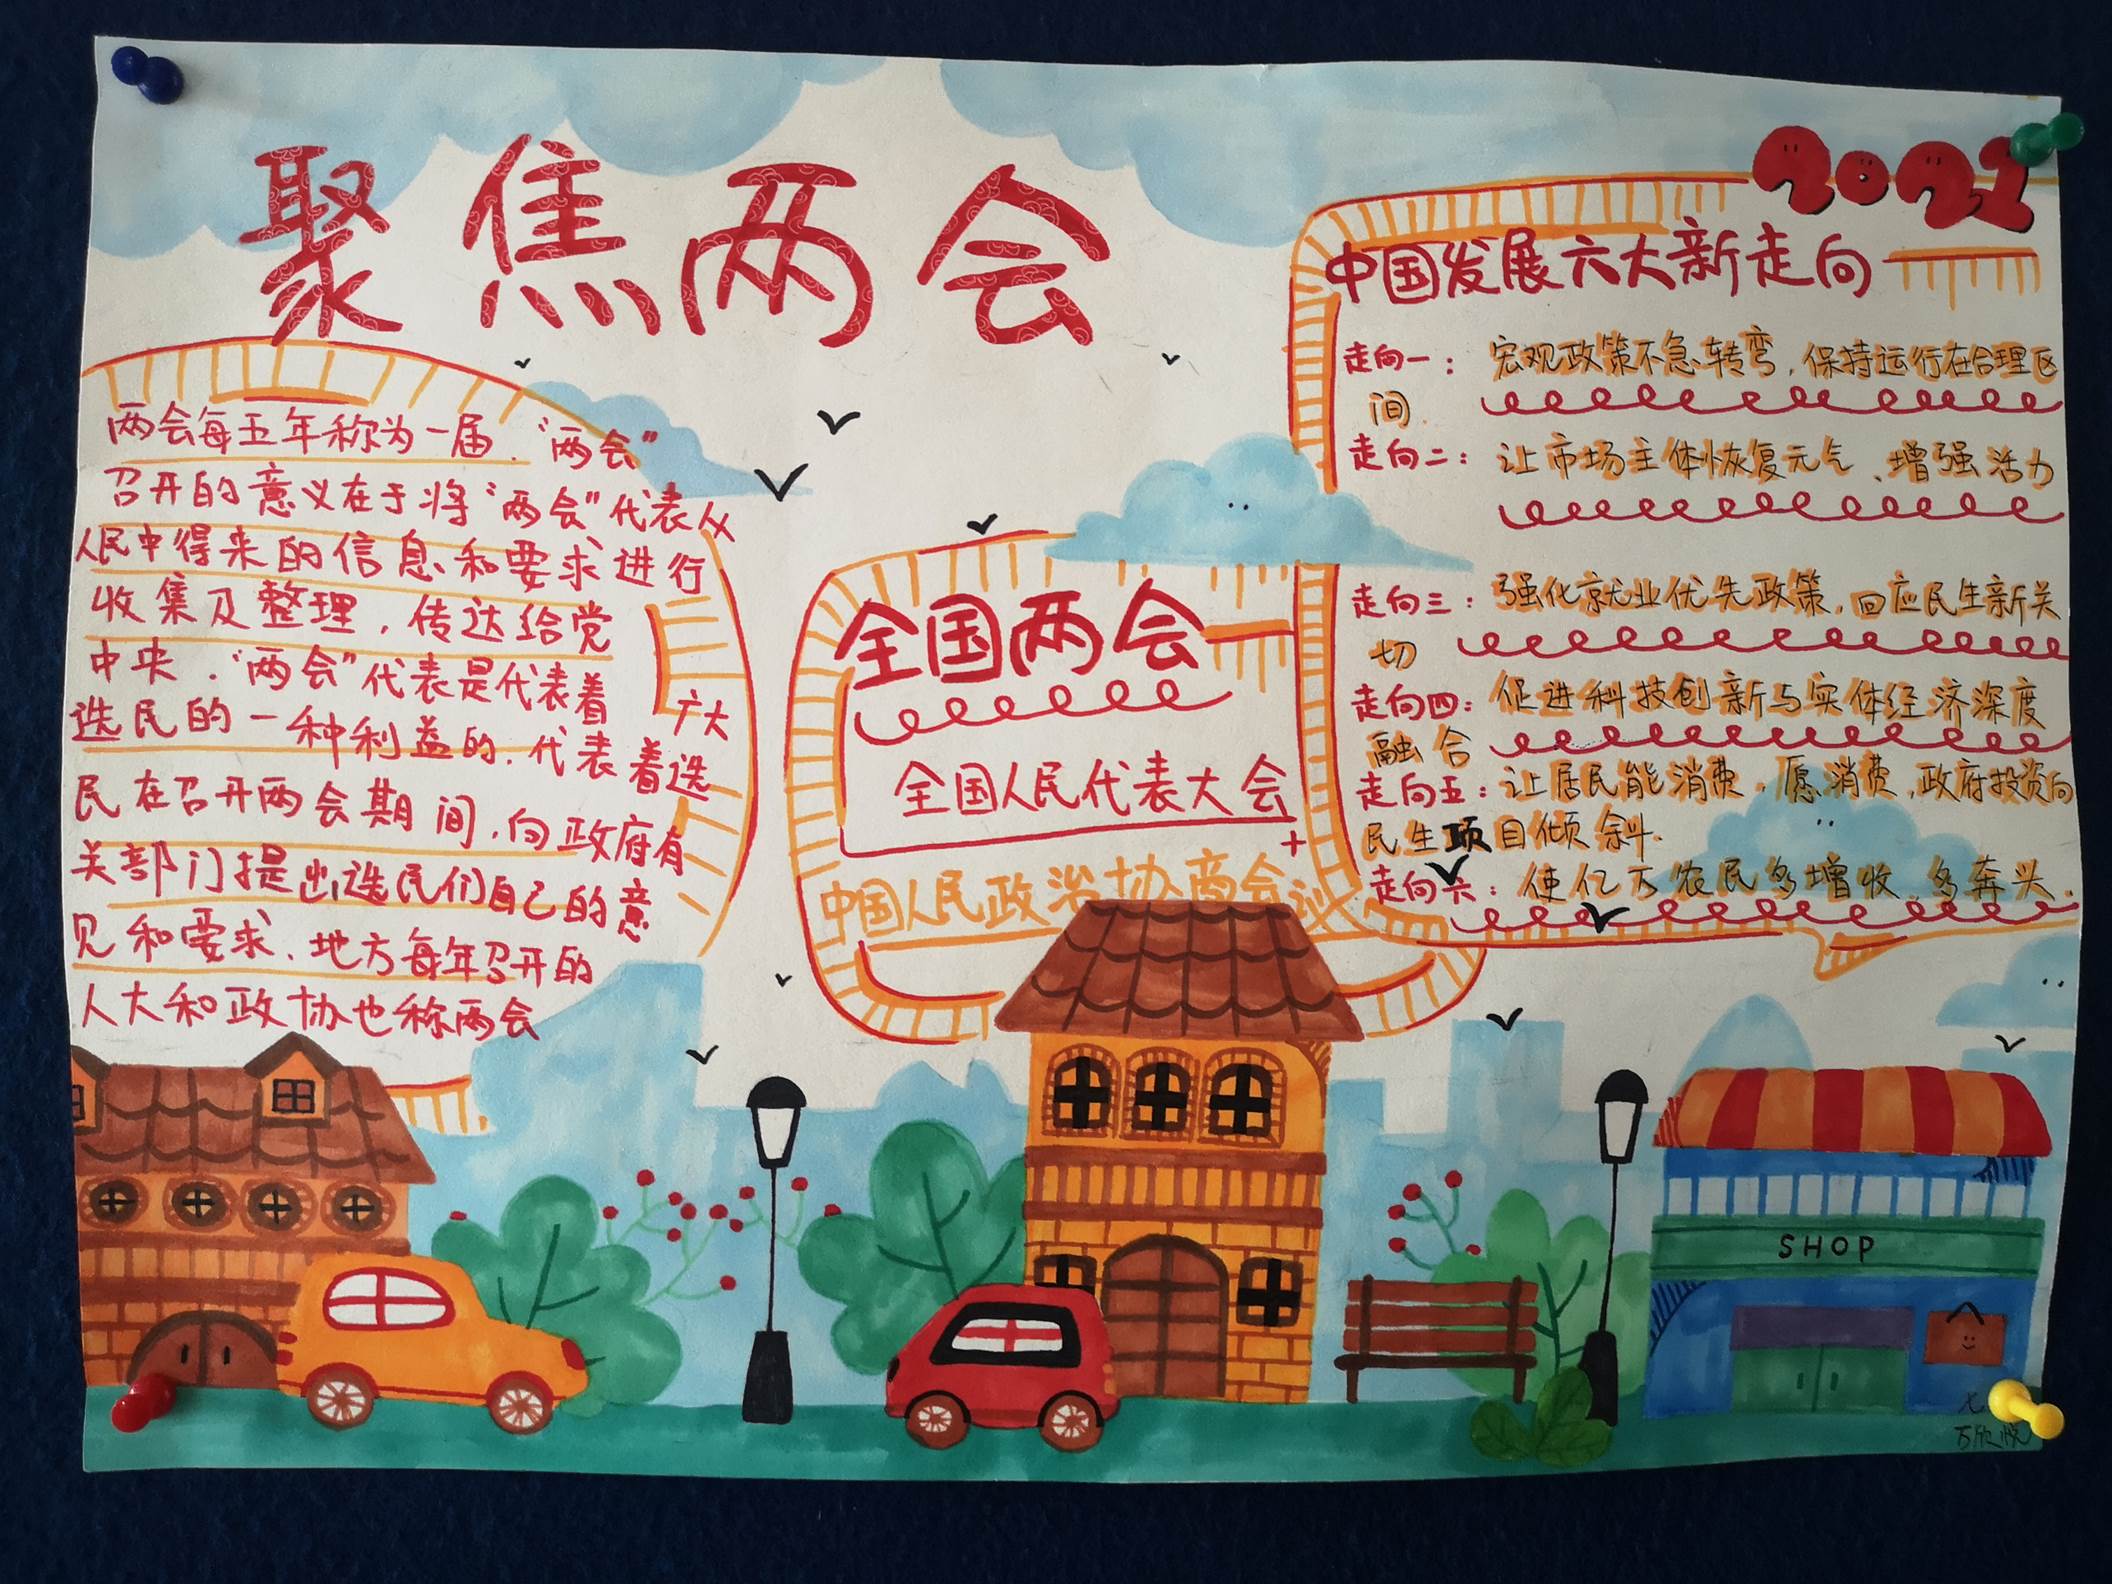 聚焦两会
两会每五年称为一届.“两会”
召开的意义在于将“两会”代表从
人民中得来的信息和要求进行
收集及整理，传达给党
中央.“两会”代表是代表着广大
选民的一种利益的.代表着选
民在召开两会期间，向政府有
关部门提出选民们自己的意
见和要求、地方每年召开的
人大和政协也称两会
全国两会
全国人民代表大会
+
中国人民政治协商会议
2021
中国发展六大新走向
走向一：宏观政策不急转弯，保持运行在合理区
间.
走向二：让市场主体恢复元气、增强活力
走向三：强化就业优先政策，回应民生新关
切
走向四：促进科技创新与实体经济深度
融合
走向五：让居民能消费，愿消费，政府投资向
民生项目倾斜.
走向六：使亿万农民多增收、多奔头.
SHOP
万欣悦